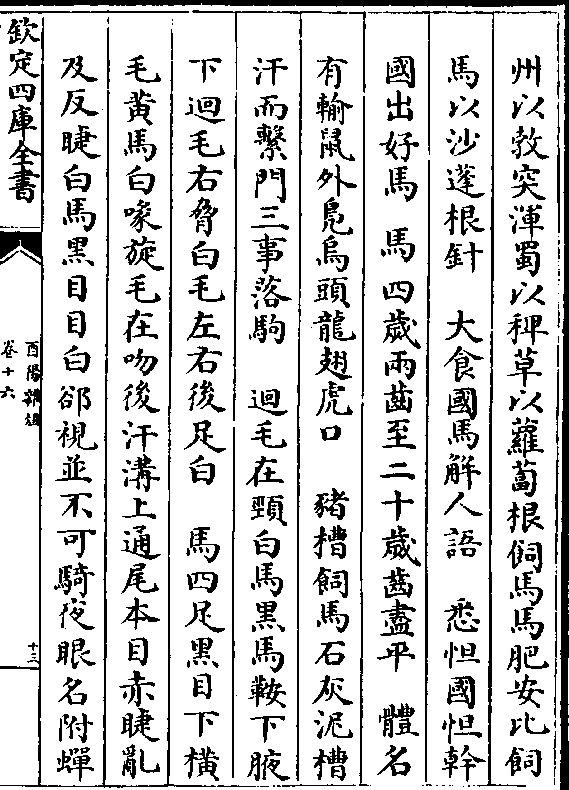 州以敎突渾蜀以稗草以蘿蔔根飼馬馬肥安比飼
馬以沙蓬根針　大食國馬解人語　悉怛國怛幹
國出好馬　馬四歲兩齒至二十歲齒盡平　體名
有輸鼠外鳧烏頭龍翅虎口　豬槽飼馬石灰泥槽
汗而繫門三事落駒　迴毛在頸白馬黑馬鞍下腋
下迴毛右脅白毛左右後足白　馬四足黑目下橫
毛黃馬白喙旋毛在吻後汗溝上通尾本目赤睫亂
及反睫白馬黑目目白郤視並不可騎夜眼名附蟬
欽定四庫全書
酉陽雜俎
卷十六
十三